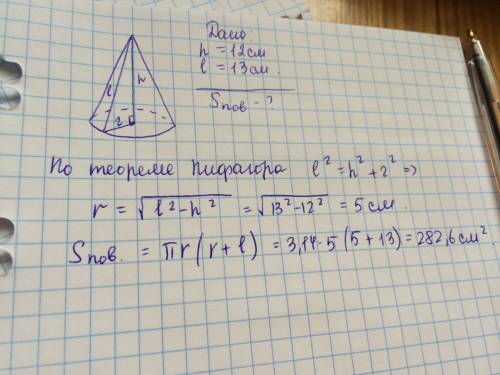 Дано:
h = 12см
l = 13см.
Sпов - ?
l h
r
По теореме Пифагора l² = h² + r² =>
r = √l² - h² = √13² - 12² = 5 см.
Sпов. = πr(r + l) = 3,14 · 5 (5 + 13) = 282,6 см²